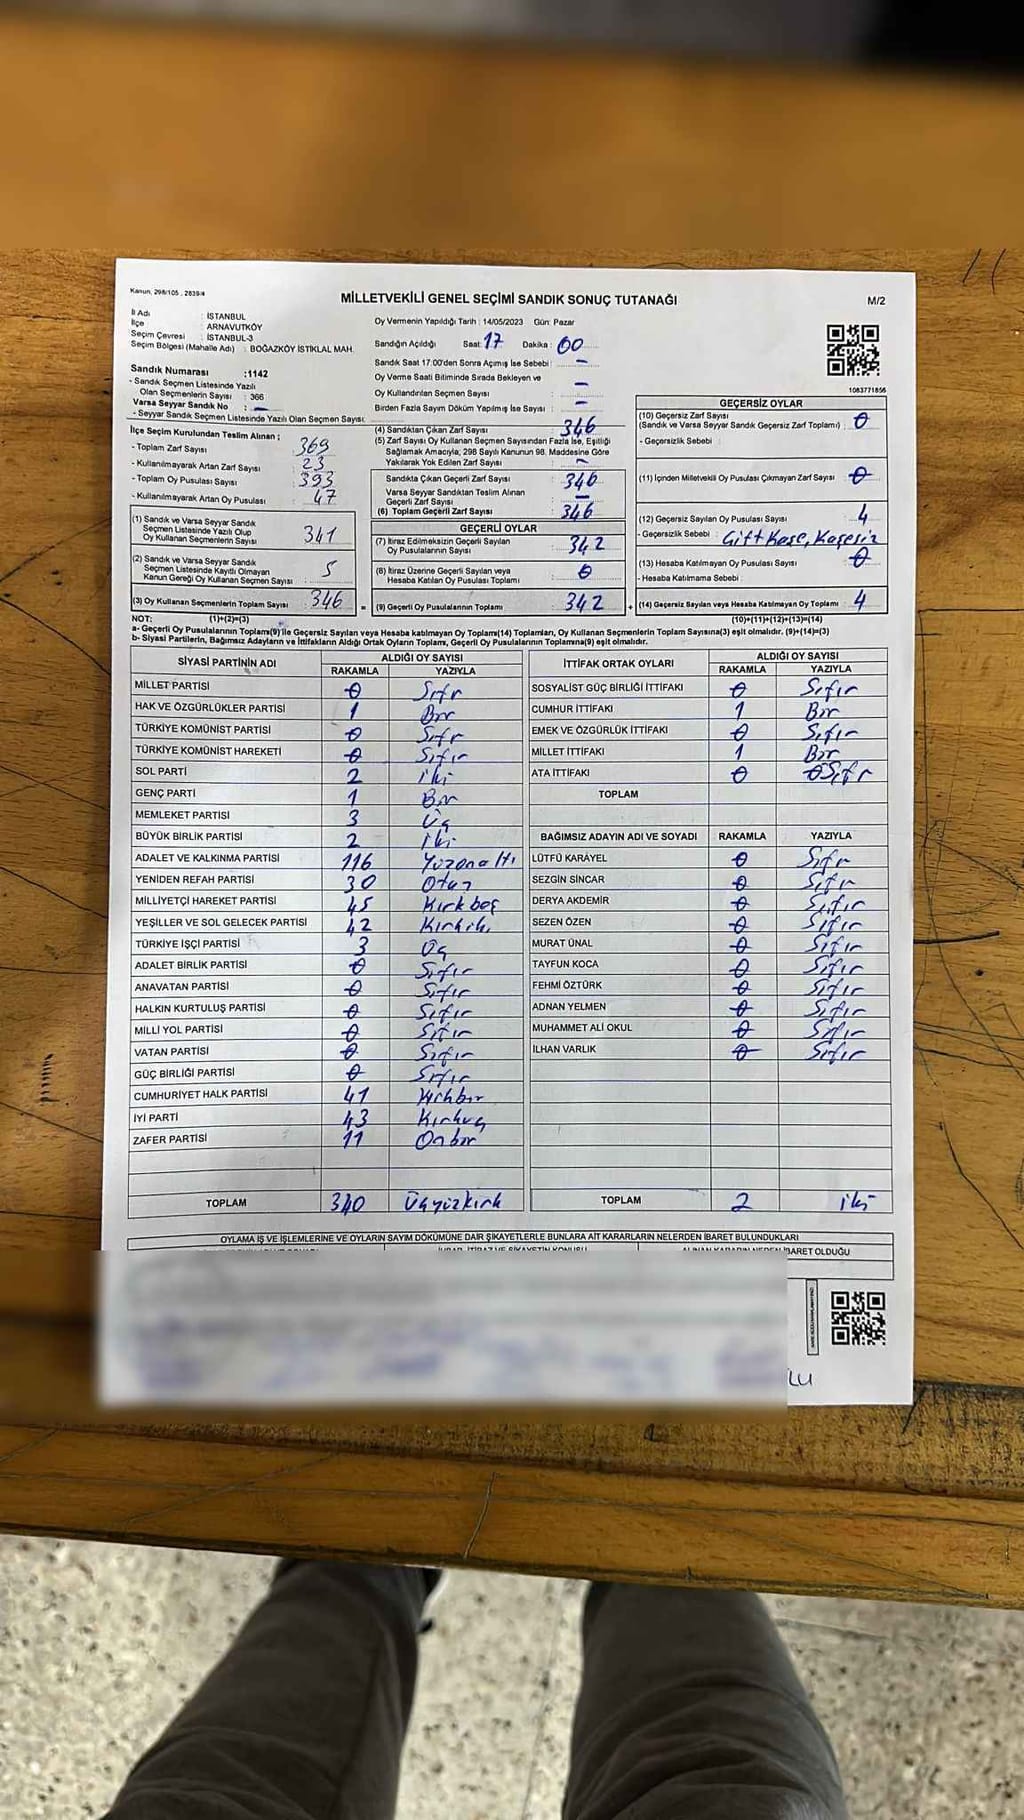 Kanun, 298/105 , 2839/4
MİLLETVEKİLİ GENEL SEÇİMİ SANDIK SONUÇ TUTANAĞI
M/2
İl Adı : İSTANBUL
İlçe : ARNAVUTKÖY
Seçim Çevresi : İSTANBUL-3
Seçim Bölgesi (Mahalle Adı) : BOĞAZKÖY İSTİKLAL MAH.
Sandık Numarası :1142
- Sandık Seçmen Listesinde Yazılı
Olan Seçmenlerin Sayısı : 366
Varsa Seyyar Sandık No : -
- Seyyar Sandık Seçmen Listesinde Yazılı Olan Seçmen Sayısı:
Oy Vermenin Yapıldığı Tarih : 14/05/2023 Gün: Pazar
Sandığın Açıldığı Saat: 17 Dakika: 00
Sandık Saat 17:00'den Sonra Açımış İse Sebebi : -
Oy Verme Saati Bitiminde Sırada Bekleyen ve
Oy Kullandırılan Seçmen Sayısı : -
Birden Fazla Sayım Döküm Yapılmış İse Sayısı : -
1083771856
İlçe Seçim Kurulundan Teslim Alınan ;
- Toplam Zarf Sayısı : 369
- Kullanılmayarak Artan Zarf Sayısı : 23
- Toplam Oy Pusulası Sayısı : 393
- Kullanılmayarak Artan Oy Pusulası : 47
(1) Sandık ve Varsa Seyyar Sandık
Seçmen Listesinde Yazılı Olup
Oy Kullanan Seçmenlerin Sayısı : 341
(2) Sandık ve Varsa Seyyar Sandık
Seçmen Listesinde Kayıtlı Olmayan
Kanun Gereği Oy Kullanan Seçmen Sayısı : 5
(3) Oy Kullanan Seçmenlerin Toplam Sayısı : 346 =
(4) Sandıktan Çıkan Zarf Sayısı : 346
(5) Zarf Sayısı Oy Kullanan Seçmen Sayısından Fazla İse, Eşitliği
Sağlamak Amacıyla; 298 Sayılı Kanunun 98. Maddesine Göre
Yakılarak Yok Edilen Zarf Sayısı : -
Sandıkta Çıkan Geçerli Zarf Sayısı : 346
Varsa Seyyar Sandıktan Teslim Alınan
Geçerli Zarf Sayısı : -
(6) Toplam Geçerli Zarf Sayısı : 346
GEÇERLİ OYLAR
(7) İtiraz Edilmeksizin Geçerli Sayılan
Oy Pusulalarının Sayısı : 342
(8) İtiraz Üzerine Geçerli Sayılan veya
Hesaba Katılan Oy Pusulası Toplamı : 0
(9) Geçerli Oy Pusulalarının Toplamı : 342 +
GEÇERSİZ OYLAR
(10) Geçersiz Zarf Sayısı
(Sandık ve Varsa Seyyar Sandık Geçersiz Zarf Toplamı) : 0
- Geçersizlik Sebebi :
(11) İçinden Milletvekili Oy Pusulası Çıkmayan Zarf Sayısı : 0
(12) Geçersiz Sayılan Oy Pusulası Sayısı : 4
- Geçersizlik Sebebi : Çift Kaşe, Kaşesiz
(13) Hesaba Katılmayan Oy Pusulası Sayısı : 0
- Hesaba Katılmama Sebebi :
(14) Geçersiz Sayılan veya Hesaba Katılmayan Oy Toplamı : 4
NOT: (1)+(2)=(3) (10)+(11)+(12)+(13)=(14)
a- Geçerli Oy Pusulalarının Toplamı(9) ile Geçersiz Sayılan veya Hesaba katılmayan Oy Toplamı(14) Toplamları, Oy Kullanan Seçmenlerin Toplam Sayısına(3) eşit olmalıdır. (9)+(14)=(3)
b- Siyasi Partilerin, Bağımsız Adayların ve İttifakların Aldığı Ortak Oyların Toplamı, Geçerli Oy Pusulalarının Toplamına(9) eşit olmalıdır.
SİYASİ PARTİNİN ADI ALDIĞI OY SAYISI
RAKAMLA YAZIYLA
MİLLET PARTİSİ 0 Sıfır
HAK VE ÖZGÜRLÜKLER PARTİSİ 1 Bir
TÜRKİYE KOMÜNİST PARTİSİ 0 Sıfır
TÜRKİYE KOMÜNİST HAREKETİ 0 Sıfır
SOL PARTİ 2 iki
GENÇ PARTİ 1 Bir
MEMLEKET PARTİSİ 3 Üç
BÜYÜK BİRLİK PARTİSİ 2 İki
ADALET VE KALKINMA PARTİSİ 116 Yüzonaltı
YENİDEN REFAH PARTİSİ 30 Otuz
MİLLİYETÇİ HAREKET PARTİSİ 45 Kırkbeş
YEŞİLLER VE SOL GELECEK PARTİSİ 42 Kırkiki
TÜRKİYE İŞÇİ PARTİSİ 3 Üç
ADALET BİRLİK PARTİSİ 0 Sıfır
ANAVATAN PARTİSİ 0 Sıfır
HALKIN KURTULUŞ PARTİSİ 0 Sıfır
MİLLİ YOL PARTİSİ 0 Sıfır
VATAN PARTİSİ 0 Sıfır
GÜÇ BİRLİĞİ PARTİSİ 0 Sıfır
CUMHURİYET HALK PARTİSİ 41 Kırkbir
İYİ PARTİ 43 Kırküç
ZAFER PARTİSİ 11 Onbir
TOPLAM 340 Üçyüzkırk
İTTİFAK ORTAK OYLARI ALDIĞI OY SAYISI
RAKAMLA YAZIYLA
SOSYALİST GÜÇ BİRLİĞİ İTTİFAKI 0 Sıfır
CUMHUR İTTİFAKI 1 Bir
EMEK VE ÖZGÜRLÜK İTTİFAKI 0 Sıfır
MİLLET İTTİFAKI 1 Bir
ATA İTTİFAKI 0 0 Sıfır
TOPLAM
BAĞIMSIZ ADAYIN ADI VE SOYADI RAKAMLA YAZIYLA
LÜTFÜ KARAYEL 0 Sıfır
SEZGİN SİNCAR 0 Sıfır
DERYA AKDEMİR 0 Sıfır
SEZEN ÖZEN 0 Sıfır
MURAT ÜNAL 0 Sıfır
TAYFUN KOCA 0 Sıfır
FEHMİ ÖZTÜRK 0 Sıfır
ADNAN YELMEN 0 Sıfır
MUHAMMET ALİ OKUL 0 Sıfır
İLHAN VARLIK 0 Sıfır
TOPLAM 2 iki
OYLAMA İŞ VE İŞLEMLERİNE VE OYLARIN SAYIM DÖKÜMÜNE DAİR ŞİKAYETLERLE BUNLARA AİT KARARLARIN NELERDEN İBARET BULUNDUKLARI
ALINAN KARARIN NEDEN İBARET OLDUĞU
LU